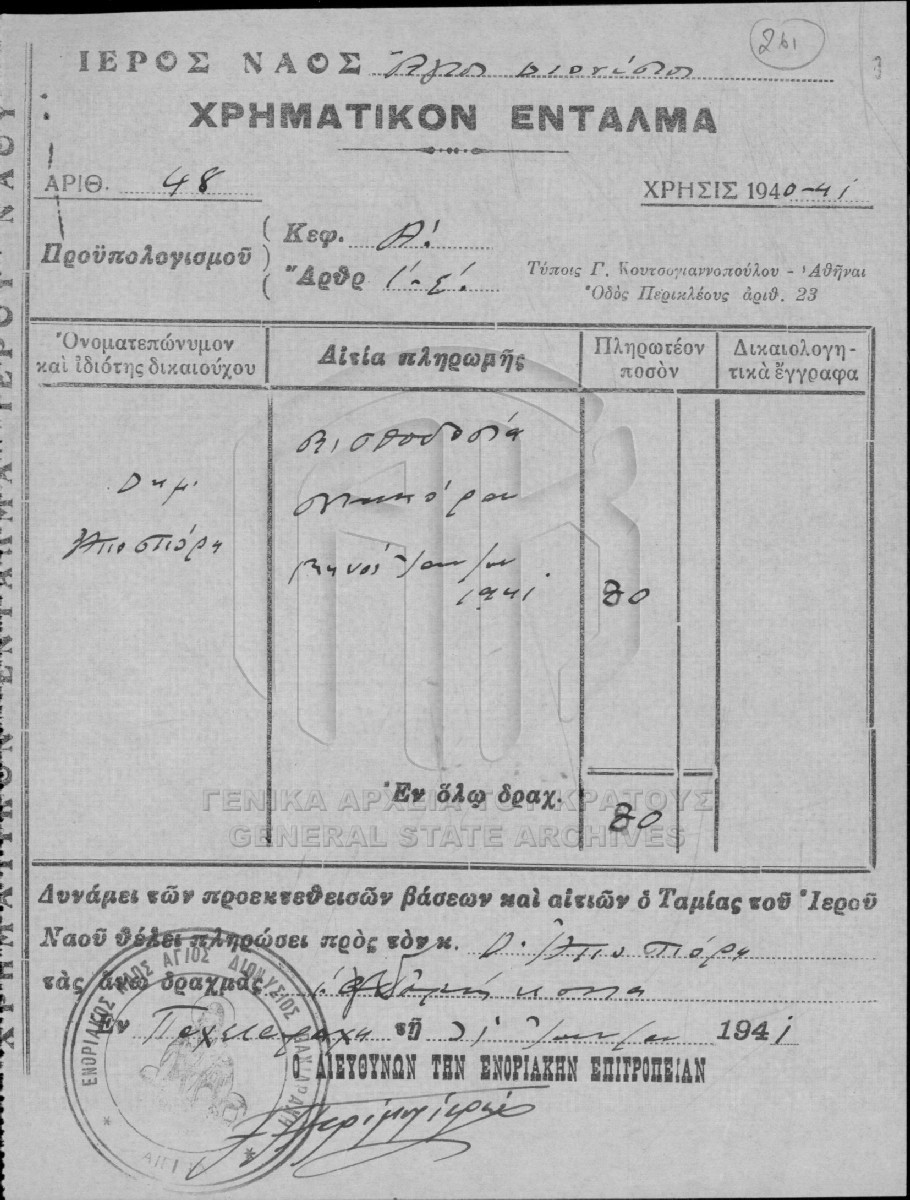 261
ΙΕΡΟΣ ΝΑΟΣ Ἁγίου Διονυσίου
ΧΡΗΜΑΤΙΚΟΝ ΕΝΤΑΛΜΑ
ΑΡΙΘ. 48
ΧΡΗΣΙΣ 1940-41
Προϋπολογισμοῦ
Κεφ. Α!
Ἄρθρ
Τύποις Γ. Κουτσογιαννοπούλου - Ἀθῆναι
Ὁδὸς Περικλέους ἀριθ. 23
Ὀνοματεπώνυμον καὶ ἰδιότης δικαιούχου
Αἰτία πληρωμῆς
Πληρωτέον ποσὸν
Δικαιολογητικὰ ἔγγραφα
Δημ.
μισθοδοσία
νεωκόρου
μηνὸς
1941
80
Ἐν ὅλῳ δραχ.
80
ΓΕΝΙΚΑ ΑΡΧΕΙΑ ΤΟΥ ΚΡΑΤΟΥΣ
GENERAL STATE ARCHIVES
Δυνάμει τῶν προεκτεθεισῶν βάσεων καὶ αἰτιῶν ὁ Ταμίας τοῦ Ἱεροῦ
Ναοῦ θέλει πληρώσει πρὸς τὸν κ. Δ.
τὰς ἄνω δραχμὰς
Ἐν Παχειοράχη τῇ 31 1941
Ο ΔΙΕΥΘΥΝΩΝ ΤΗΝ ΕΝΟΡΙΑΚΗΝ ΕΠΙΤΡΟΠΕΙΑΝ
ΕΝΟΡΙΑΚΟΣ ΝΑΟΣ ΑΓΙΟΣ ΔΙΟΝΥΣΙΟΣ
ΧΡΗΜΑΤΙΚΟΝ ΕΝΤΑΛΜΑ ΙΕΡΟΥ ΝΑΟΥ